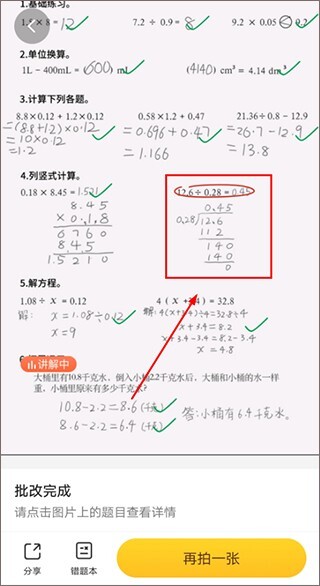 1.基础练习。
1.5 × 8 = 12 7.2 ÷ 0.9 = 8 9.2 × 0.05 0.2
2.单位换算。
1L − 400mL = (600) mL (4140) cm³ = 4.14 dm³
3.计算下列各题。
8.8×0.12 + 1.2×0.12 0.58×1.2 + 0.47 21.36÷0.8 - 12.9
=(8.8+1.2)×0.12 =0.696+0.47 =26.7-12.9
=10×0.12 =1.166 =13.8
=1.2
4.列竖式计算。
0.18 × 8.45 = 1.521 12.6÷0.28 = 0.45
8.45 0.45
×0.18 0.28/12.6
6760 112
845 140
1.5210 140
0
5.解方程。
1.08 ÷ x = 0.12 4(x+3.4) = 32.8
解: x=1.08÷0.12 解:4(x+3.4)÷4=32.8÷4
x=9 x+3.4=8.2
x+3.4-3.4=8.2-3.4
x=4.8
讲解中
大桶里有10.8千克水,倒入小桶2.2千克水后,大桶和小桶的水一样
重,小桶里原来有多少千克水?
10.8-2.2=8.6(千克)
8.6-2.2=6.4(千克) 答:小桶有6.4千克水。
批改完成
请点击图片上的题目查看详情
分享 错题本 再拍一张